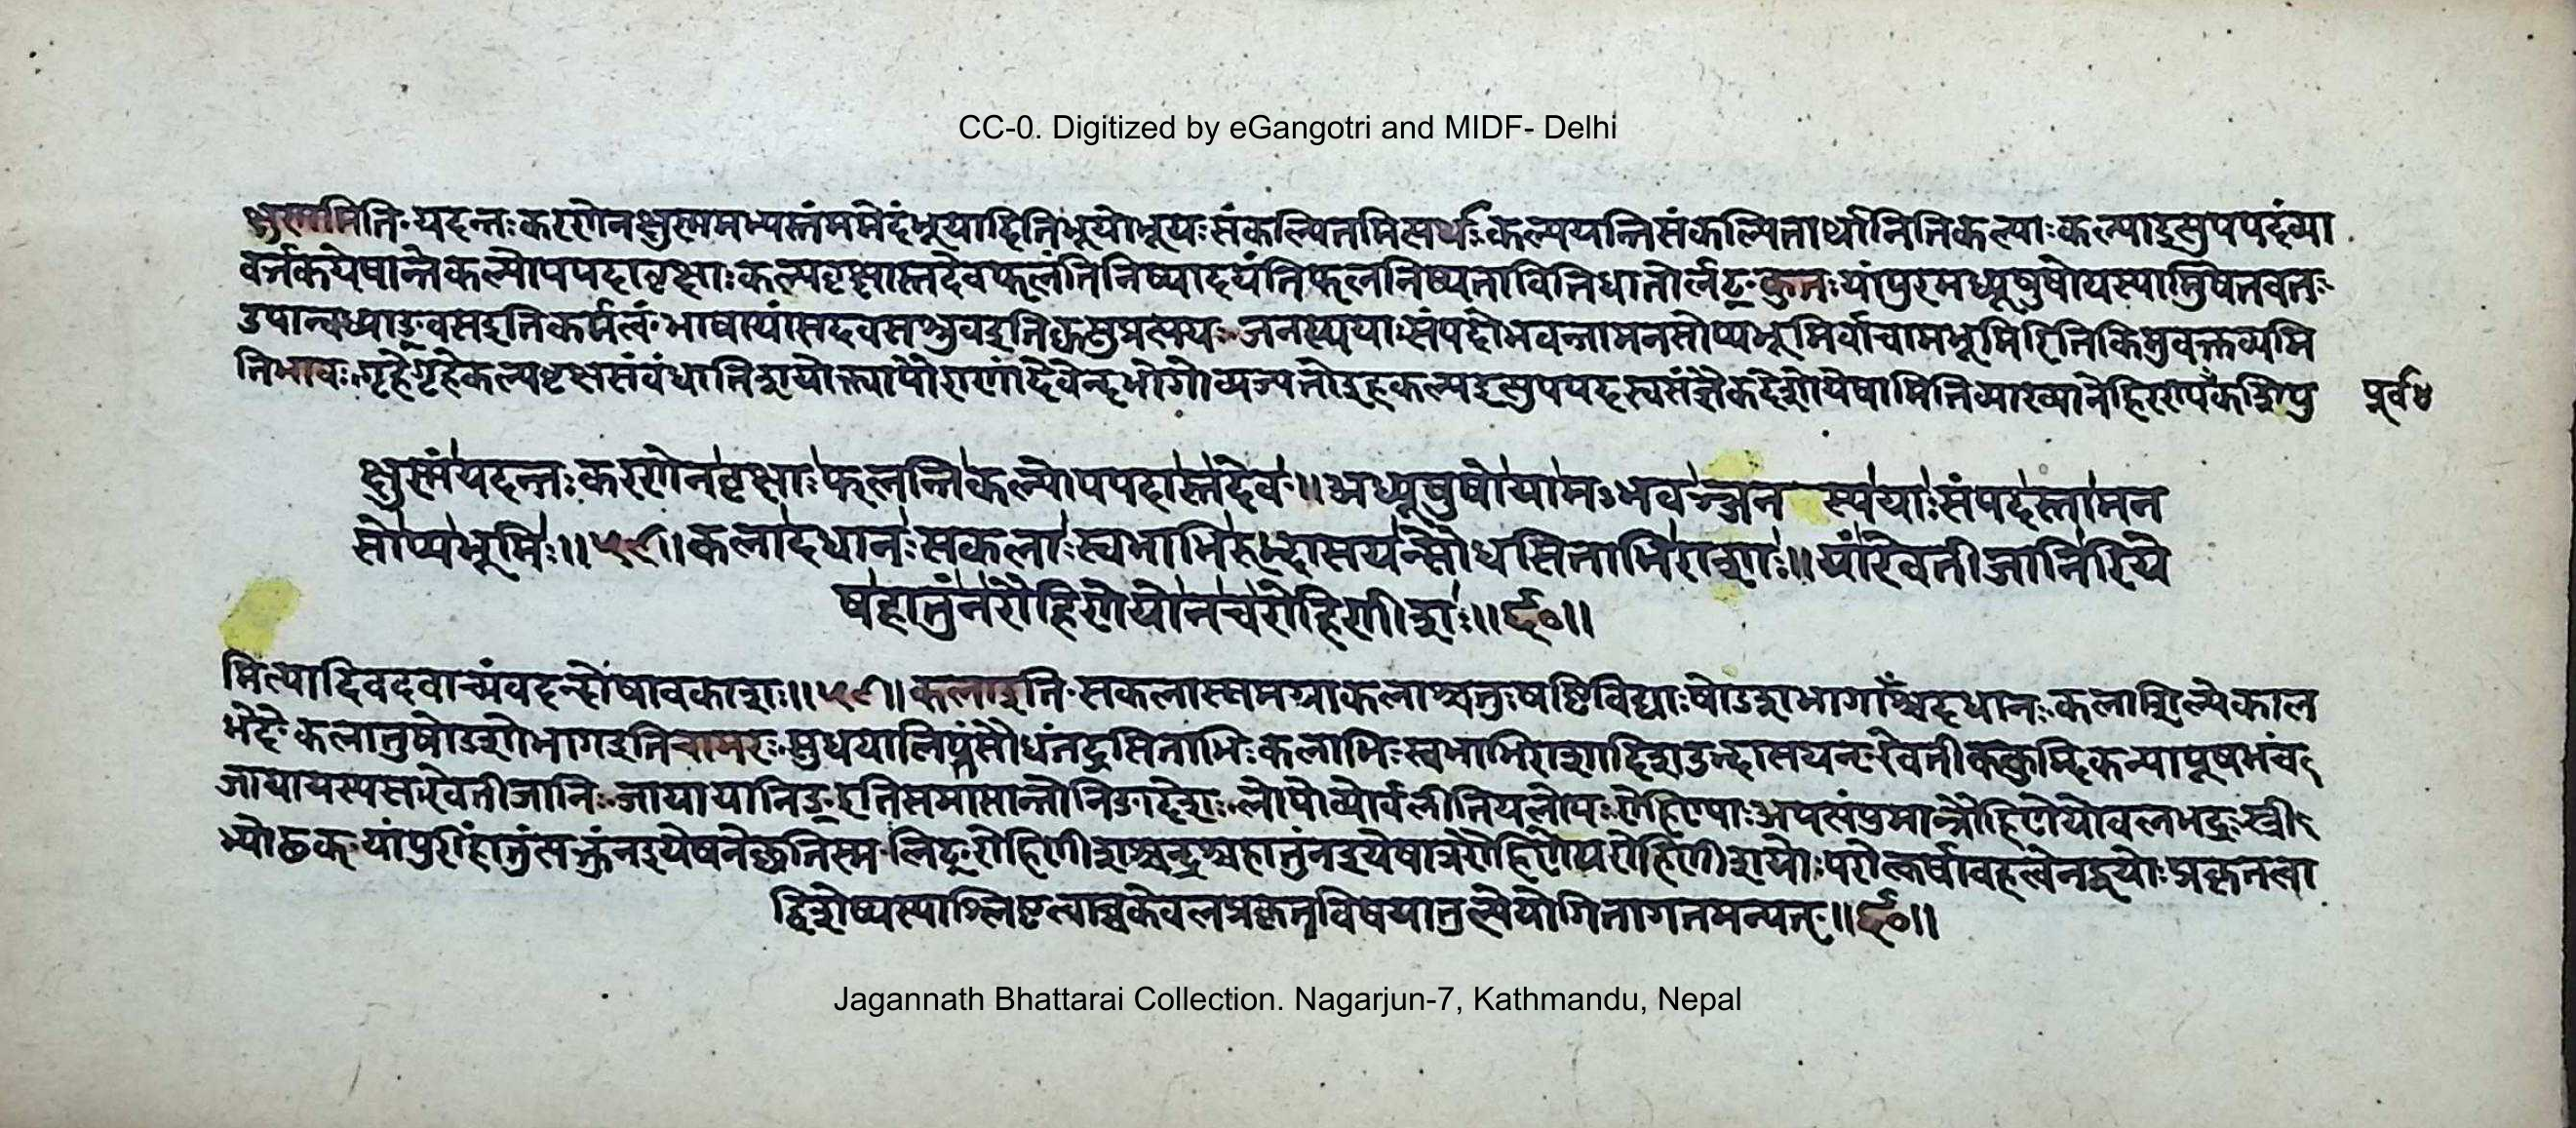 CC-0. Digitized by eGangotri and MIDF- Delhi
क्षुस्ममिति यदन्तःकरणेनक्षुस्ममभ्यस्तंममेदंभूयादितिभूयोभूयःसंकल्पितमित्यर्थःकल्पयन्तिसंकल्पितार्थानितिकल्पाःकल्पाइत्युपपदंव्या
वर्त्तकंयेषान्तेकल्पोपपदावृक्षाःकल्पवृक्षास्तदेवफलंतिनिष्पादयंतिफलनिष्पत्तावितिधातोर्लट् कुतःयांपुरमध्यूषुषोयस्यामुषितवतः
उपान्वध्याङ्वसइतिकर्मत्वं भाषायांसदवसश्रुवइतिक्वसुप्रत्ययः जनस्ययाःसंपदोभवन्तामनसोप्यभूमिर्वाचामभूमिरितिकिमुवक्तव्यमि
तिभावः गृहेगृहेकल्पवृक्षसंबंधातिशयोक्त्यापौराणांदेवेन्द्रभोगोव्यज्यतेइहकल्पइत्युपपदस्वसंज्ञैकदेशोयेषामितिव्याख्यानेहिरण्यपूर्वंकशिपु
क्षुस्मंयदन्तःकरणेनवृक्षाःफलन्तिकल्पोपपदास्तदेव॥अध्यूषुषोयामभवञ्जनस्ययाःसंपदस्तामन
सोप्यभूमिः॥५९॥कलादधानःसकलाःस्वभाभिरुद्भासयन्सौधसिताभिराशाः॥यांरेवतीजानिरिये
षहातुंनरौहिणेयोनचरोहिणीशः॥६०॥
मित्यादिवदवाच्यंवदन्दोषावकाशः॥५९॥कलाइति सकलास्समग्राकलाश्चतुःषष्टिविद्याःषोडशभागाँश्चदधानः कलाशिल्पेकाल
भेदे कलातुषोडशोभागइतिचामरः सुधयालिप्तंसौधंतद्वत्सिताभिःकलाभिःस्वभाभिराशादिशउद्भासयन् रेवतीककुद्मिकन्यापूषभंच
जायायस्यसरेवतीजानिः जायायानिङ् इतिसमासान्तोनिङादेशः लोपोव्योर्वलीतियलोपः रोहिण्याःअपत्यंपुमान्रौहिणेयोबलभद्रःस्त्री
भ्योढक् यांपुरींहातुंत्यक्तुंनइयेषनेच्छतिस्म लिट् रोहिणीशश्चन्द्रश्चहातुंनइयेषात्ररौहिणेयरोहिणीशयोःपरोत्कर्षावहत्वेनद्वयोःप्रकृतत्वा
द्विशेष्यस्याश्लिष्टत्वाच्चकेवलप्रकृतविषयातुल्ययोगितागतमन्यत्॥६०॥
Jagannath Bhattarai Collection. Nagarjun-7, Kathmandu, Nepal